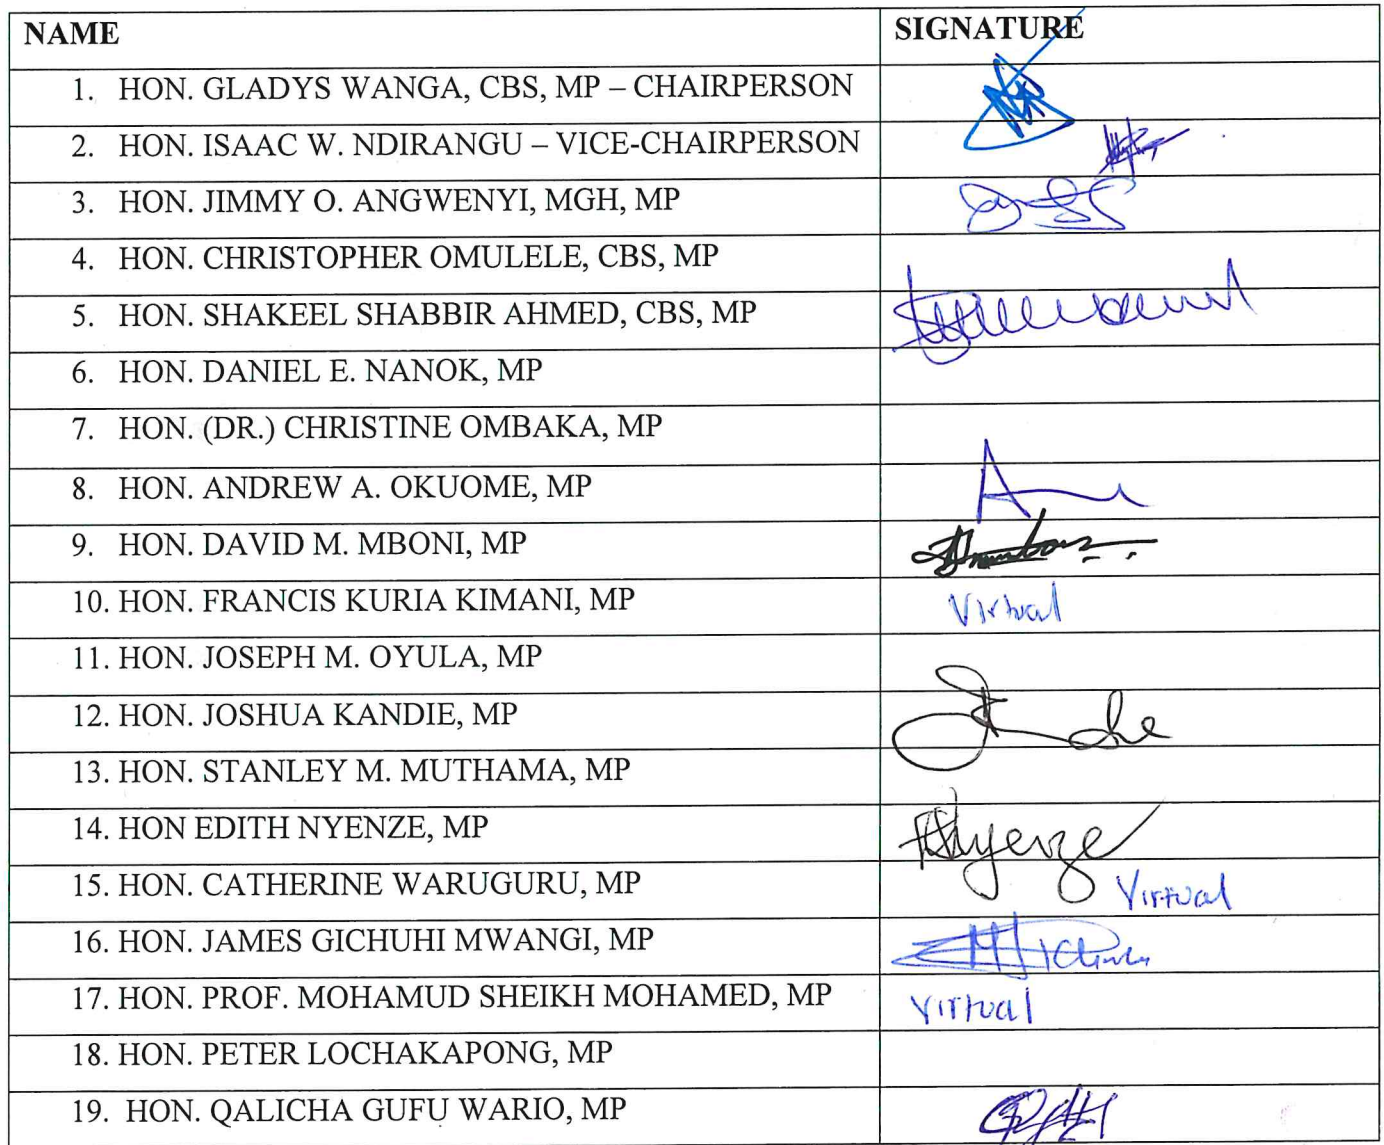 NAME SIGNATURE
1. HON. GLADYS WANGA, CBS, MP – CHAIRPERSON
2. HON. ISAAC W. NDIRANGU – VICE-CHAIRPERSON
3. HON. JIMMY O. ANGWENYI, MGH, MP
4. HON. CHRISTOPHER OMULELE, CBS, MP
5. HON. SHAKEEL SHABBIR AHMED, CBS, MP
6. HON. DANIEL E. NANOK, MP
7. HON. (DR.) CHRISTINE OMBAKA, MP
8. HON. ANDREW A. OKUOME, MP
9. HON. DAVID M. MBONI, MP
10. HON. FRANCIS KURIA KIMANI, MP Virtual
11. HON. JOSEPH M. OYULA, MP
12. HON. JOSHUA KANDIE, MP
13. HON. STANLEY M. MUTHAMA, MP
14. HON EDITH NYENZE, MP Nyenze
15. HON. CATHERINE WARUGURU, MP Virtual
16. HON. JAMES GICHUHI MWANGI, MP
17. HON. PROF. MOHAMUD SHEIKH MOHAMED, MP Virtual
18. HON. PETER LOCHAKAPONG, MP
19. HON. QALICHA GUFU WARIO, MP